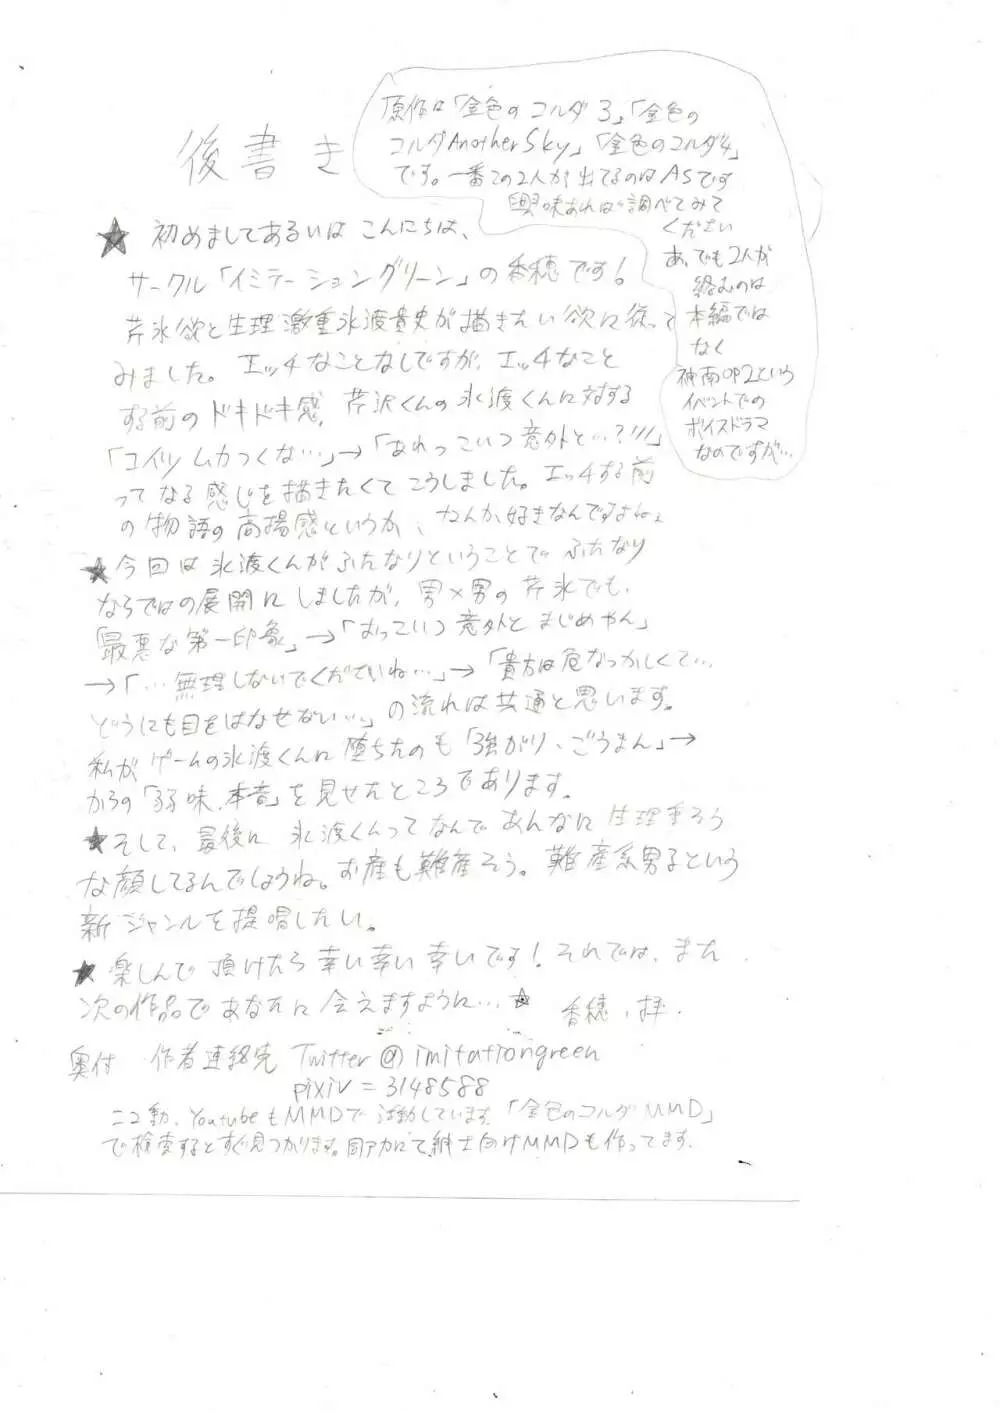 後書き
原作は「金色のコルダ3」「金色の
コルダAnotherSky」「金色のコルダ4」
です。一番この2人が出てるのはASです
興味あれば調べてみて
ください
あ、でも2人が
絡むのは
本編では
なく
神南OP2という
イベントでの
ボイスドラマ
なのですが…
★初めましてあるいはこんにちは、
サークル「イミテーショングリーン」の香穂です!
芹氷欲と生理激重氷渡貴史が描きたい欲に従って
みました。エッチなことなしですが、エッチなこと
する前のドキドキ感、芹沢くんの氷渡くんに対する
「コイツムカつくな…」→「あれっこいつ意外と…?!!!」
ってなる感じを描きたくてこうしました。エッチする前
の物語の高揚感というか、なんか好きなんですよね。
★今回は氷渡くんがふたなりということでふたなり
ならではの展開にしましたが、男×男の芹氷でも、
「最悪な第一印象」→「おっこいつ意外とまじめやん」
→「…無理しないでくださいね…」→「貴方は危なっかしくて…
どうにも目をはなせない…」の流れは共通と思います。
私がゲームの氷渡くんに堕ちたのも「強がり、ごうまん」→
からの「弱味、本音」を見せたところであります。
★そして、最後に氷渡くんってなんであんなに生理重そう
な顔してるんでしょうね。お産も難産そう。難産系男子という
新ジャンルを提唱したい。
★楽しんで頂けたら幸い幸い幸いです!それでは、また
次の作品であなたに会えますように…☆ 香穂、拝.
奥付 作者連絡先 Twitter@imitationgreen
pixiv=3148588
ニコ動、YoutubeもMMDで活動しています「金色のコルダMMD」
で検索するとすぐ見つかります。同アカにて紳士向けMMDも作ってます.